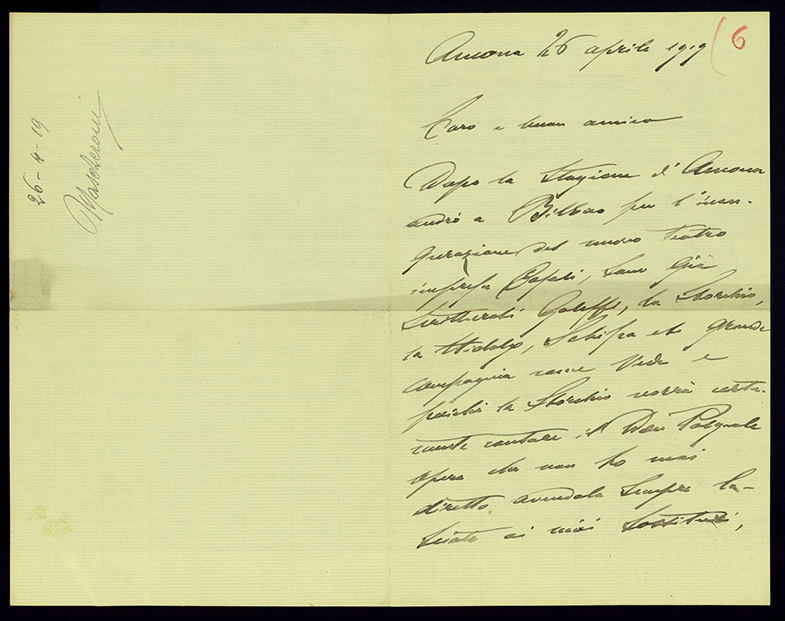 26-4-19
Mascheroni
6
Ancona 26 aprile 1919
Caro e buon amico
Dopo la Stagione d'Ancona
andrò a Bilbao per l'inau-
gurazione del nuovo teatro
impresa Bofati, Sono già
Scritturati Galeffi, la Storchio,
la Hidalgo, Schipa etc grande
compagnia come vede e
poichè la Storchio vorrà certa-
mente cantare il Don Pasquale
opera che non ho mai
diretto avendola sempre la-
sciata ai miei sostituti,